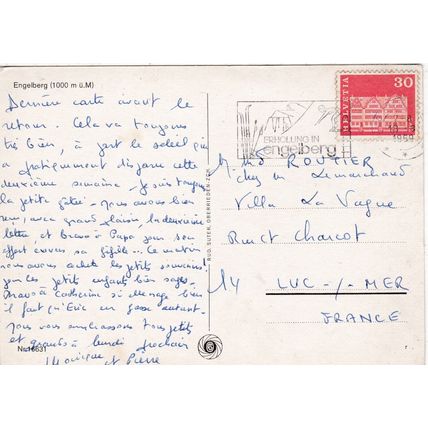 Engelberg (1000 m ü.M)
Dernière carte avant le
retour. Cela va toujours
très bien, à part le soleil qui
a pratiquement disparu cette
deuxième semaine. Je suis toujours
la petite gâtée. Nous avons bien
reçu, avec grand plaisir, la deuxième
lettre, et bravo à Papa pour son
effort
ce matin
nous avons acheté les petits souvenirs
pour les petits enfants bien sages.
Bravo à Catherine si ménage bien
il faut qu'Eric en fasse autant.
Nous vous embrassons tous petits
et grands à lundi prochain
Monique et Pierre
No 16631
R.+G. SUTER, OBERRIEDEN-ZCH
ERHOLUNG IN
engelberg
1969
HELVETIA
30
ROUTIER
chez M Lemarchand
Villa La Vague
Rue Charcot
14 LUC-/-MER
FRANCE